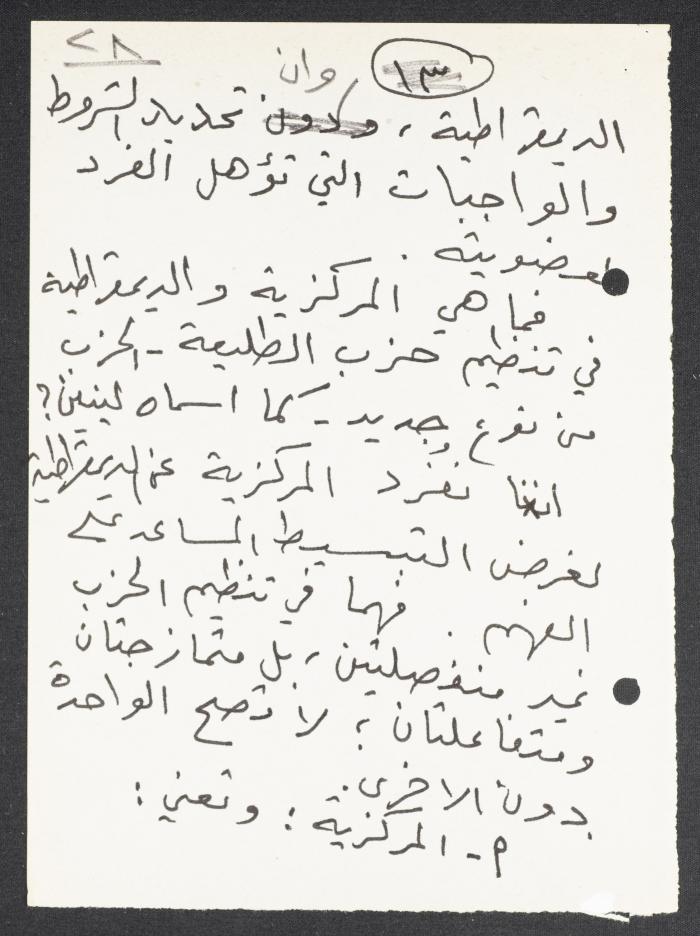 ٢٨
١٣
وان
الديمقراطية ، وحدود تحديد الشروط
والواجبات التي تؤهل الفرد
لعضويته .
فما هي المركزية والديمقراطية
في تنظيم حزب الطليعة - الحزب
من نوع جديد - كما اسماه لينين ؟
اننا نفرد المركزية عن الديمقراطية
لغرض التبسيط المساعد على
الفهم . فهما في تنظيم الحزب
غير منفصلتين ، بل متمازجتان
ومتفاعلتان ؛ لا تصح الواحدة
بدون الاخرى .
م - المركزية : وتعني :